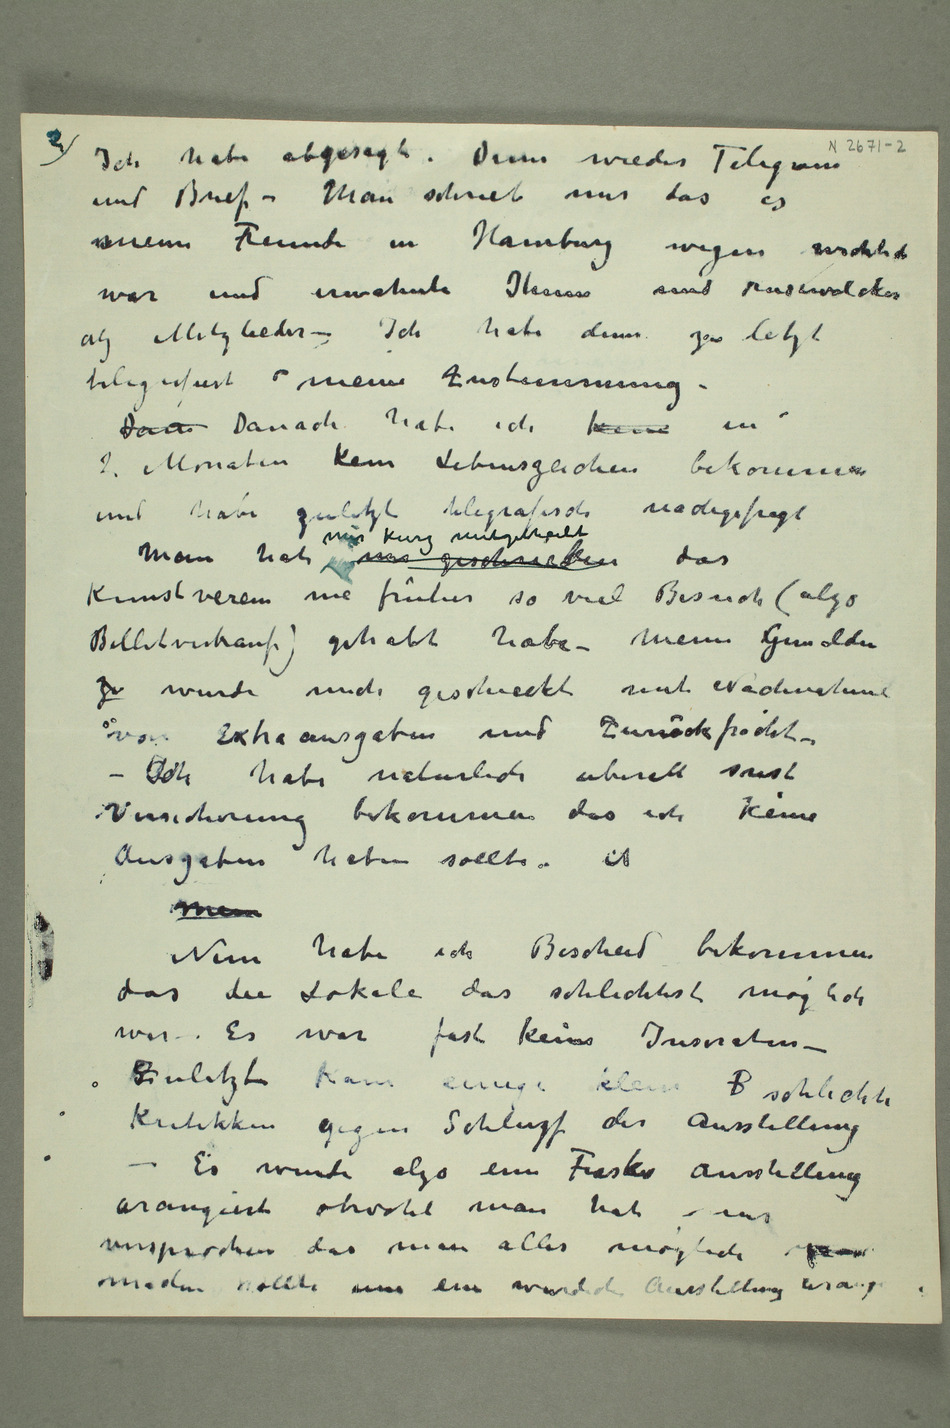 2)
N 2671-2
Ich habe abgesagt. Dann wieder Telegram
und Brief – Man schrieb mir das es
meine Freunde in Hamburg wegen wichtich
war und erwähnte Ihnen und
als Mitglieder – Ich habe dann zu letzt
telegrafiert meine Zustimmung –
Dann Danach habe ich keine in
2. Monaten kein Lebenszeichen bekommen
und habe zuletzt telegrafisch nachgefragt
mir kurz mitgetheilt
Man hat mir geschrieben das
Kunstverein nie früher so viel Besuch (also
Billetverkauf) gehabt habe – meine Gemälden
zu wurde mich geschieckt mit Nachnahme
von Extraausgaben und Zurückfracht –
– Ich habe naturlich uberall sonst
Versicherung bekommen das ich keine
Ausgaben haben sollte.
mein
Nun habe ich Bescheid bekommen
das die Lokale das schlechtest möglich
war. Es war fast keine Inseraten –
Zuletzt kam einige kleine B schlechte
Kritikken gegen Schlusz der Ausstellung
– Es wurde also eine Fiasko Ausstellung
arangiert obwohl man hat mir
versprochen das man alles mögliche
machen sollte um eine würdich Ausstellung